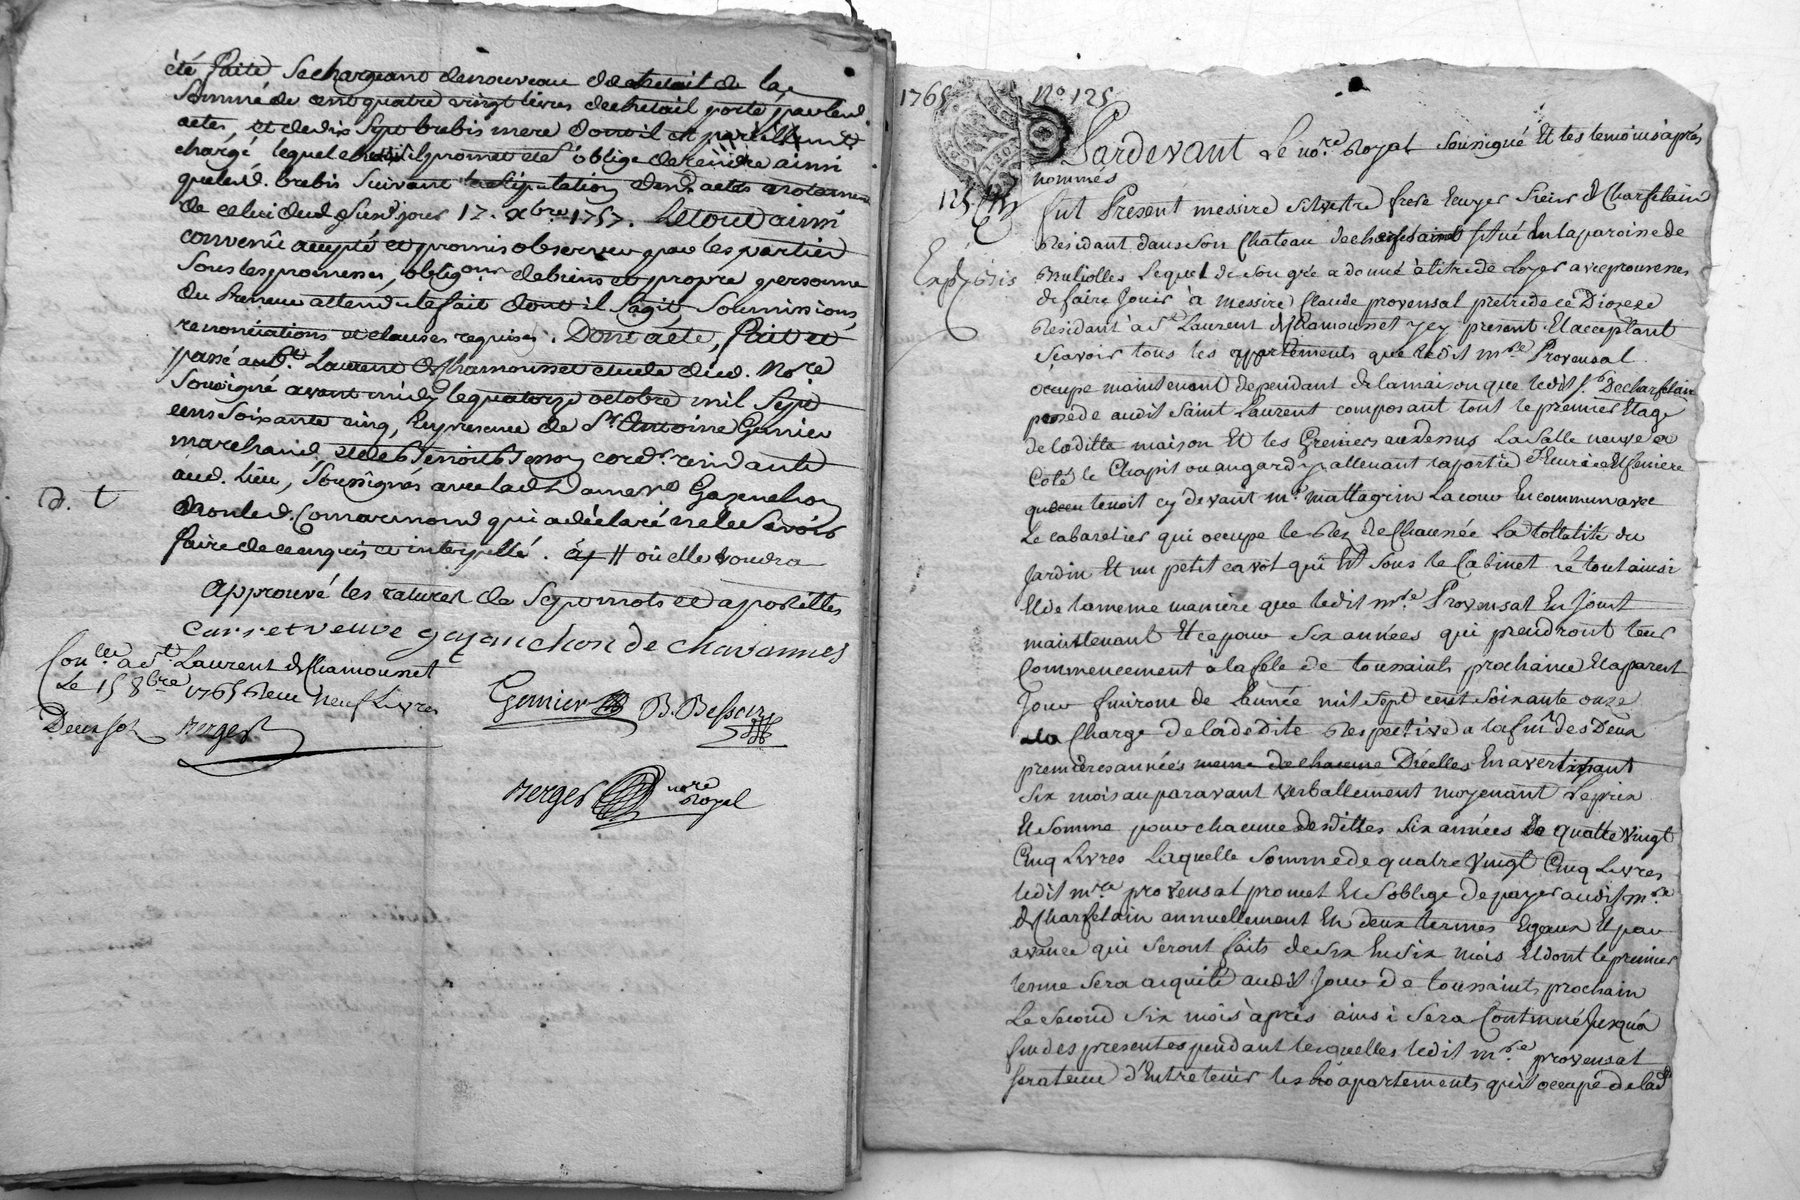 été faite se chargeant denouveau dudt chetail de la
somme de cent quatre vingt livres de chetail porté par led.
actes, et de dix sept brebis mere dont il est pareillement
chargé lequel chetail il promet et s'oblige de rendre ainsi
que lesd. brebis suivant la stipulation desd. actes notamment
de celui dud. jour 17. xbre 1757. Le tout ainsi
convenû accepté et promis observer par les parties
sous les promesses, obligons de biens et propre personne
du preneur attendu le fait dont il s'agit soumissions,
renonciations et clauses requises. Dont acte, fait et
passé aud. St. Laurent de Chamousset etude dud. Nore
soussigné avant midy le quatorze octobre mil sept
cens soixante cinq, en presence de Sr. Antoine Garnier
marchand, et de Benoit Besson cordr. residants
aud. lieu, soussignés avec lad. Dame ve Gazanchon
et non led. Comarmond qui a declaré ne le savoir
d. t
faire de ce enquis et interpellé. // où elle voudra
approuvé les ratures de sept mots et apostilles
carret veuve gazanchon de chavannes
Conllé a st. Laurent de Chamousset
Le 15 8bre 1765 Reçu neuf Livres
Deux sols Merger
Garnier B. Besson
Merger nore Royal
1765 No 125
Pardevant Le nore. Royal soussigné Et les temoins après
nommés
125
fut Present messire silvestre frere Ecuyer sieur de Charfetain
Expédiés
Residant dans son Chateau de charfetain situé En la paroisse de
Brulliolles Lequel de son gré a donné à titre de Loyer avec promesses
de faire Jouir à messire Claude provensal pretre de ce Diocese
Residant à st. Laurent de Chamousset Icy present Et acceptant
scavoir tous les appartements que ledit mre. Provensal
occupe maintenant dependant de la maison que ledit sr. de charfetain
possede audit Saint Laurent composant tout le premier Etage
de laditte maison Et les Greniers au dessus La Salle neuve a
Coté le Chapit ou angard y attenant la portie d'Ecurie Et feniere
que tenoit cy devant mr. mattagrin La cour En commun avec
Le cabaretier qui occupe le Rez de Chaussée La tottalité du
Jardin Et un petit cavot qui Est sous le Cabinet Le tout ainsi
Et de la meme maniere que ledit mre. Provensal En Jouit
maintenant Et ce pour six années qui prendront leur
Commencement à la fete de toussaints prochaine Et a pareil
Jour finiront de L'année mil sept cent soixante onze
a la Charge de la dédite Respective a la fin des Deux
premieres années En avertissant
six mois auparavant verballement moyenant Le prix
Et somme pour chacune desdittes six années de quatre vingt
Cinq Livres Laquelle somme de quatre vingt Cinq Livres
ledit mre provensal promet Et s'oblige de payer audit mre.
de Charfetain annuellement En deux termes Egaux Et par
avance qui seront faits de six En six mois Et dont le premier
terme sera acquité audit Jour de toussaints prochain
Le second six mois après ainsi sera Continué Jusqu'à
fin des presentes pendant lesquelles ledit mre. provensal
sera tenu d'Entretenir les apartements qu'il occupe de lad.